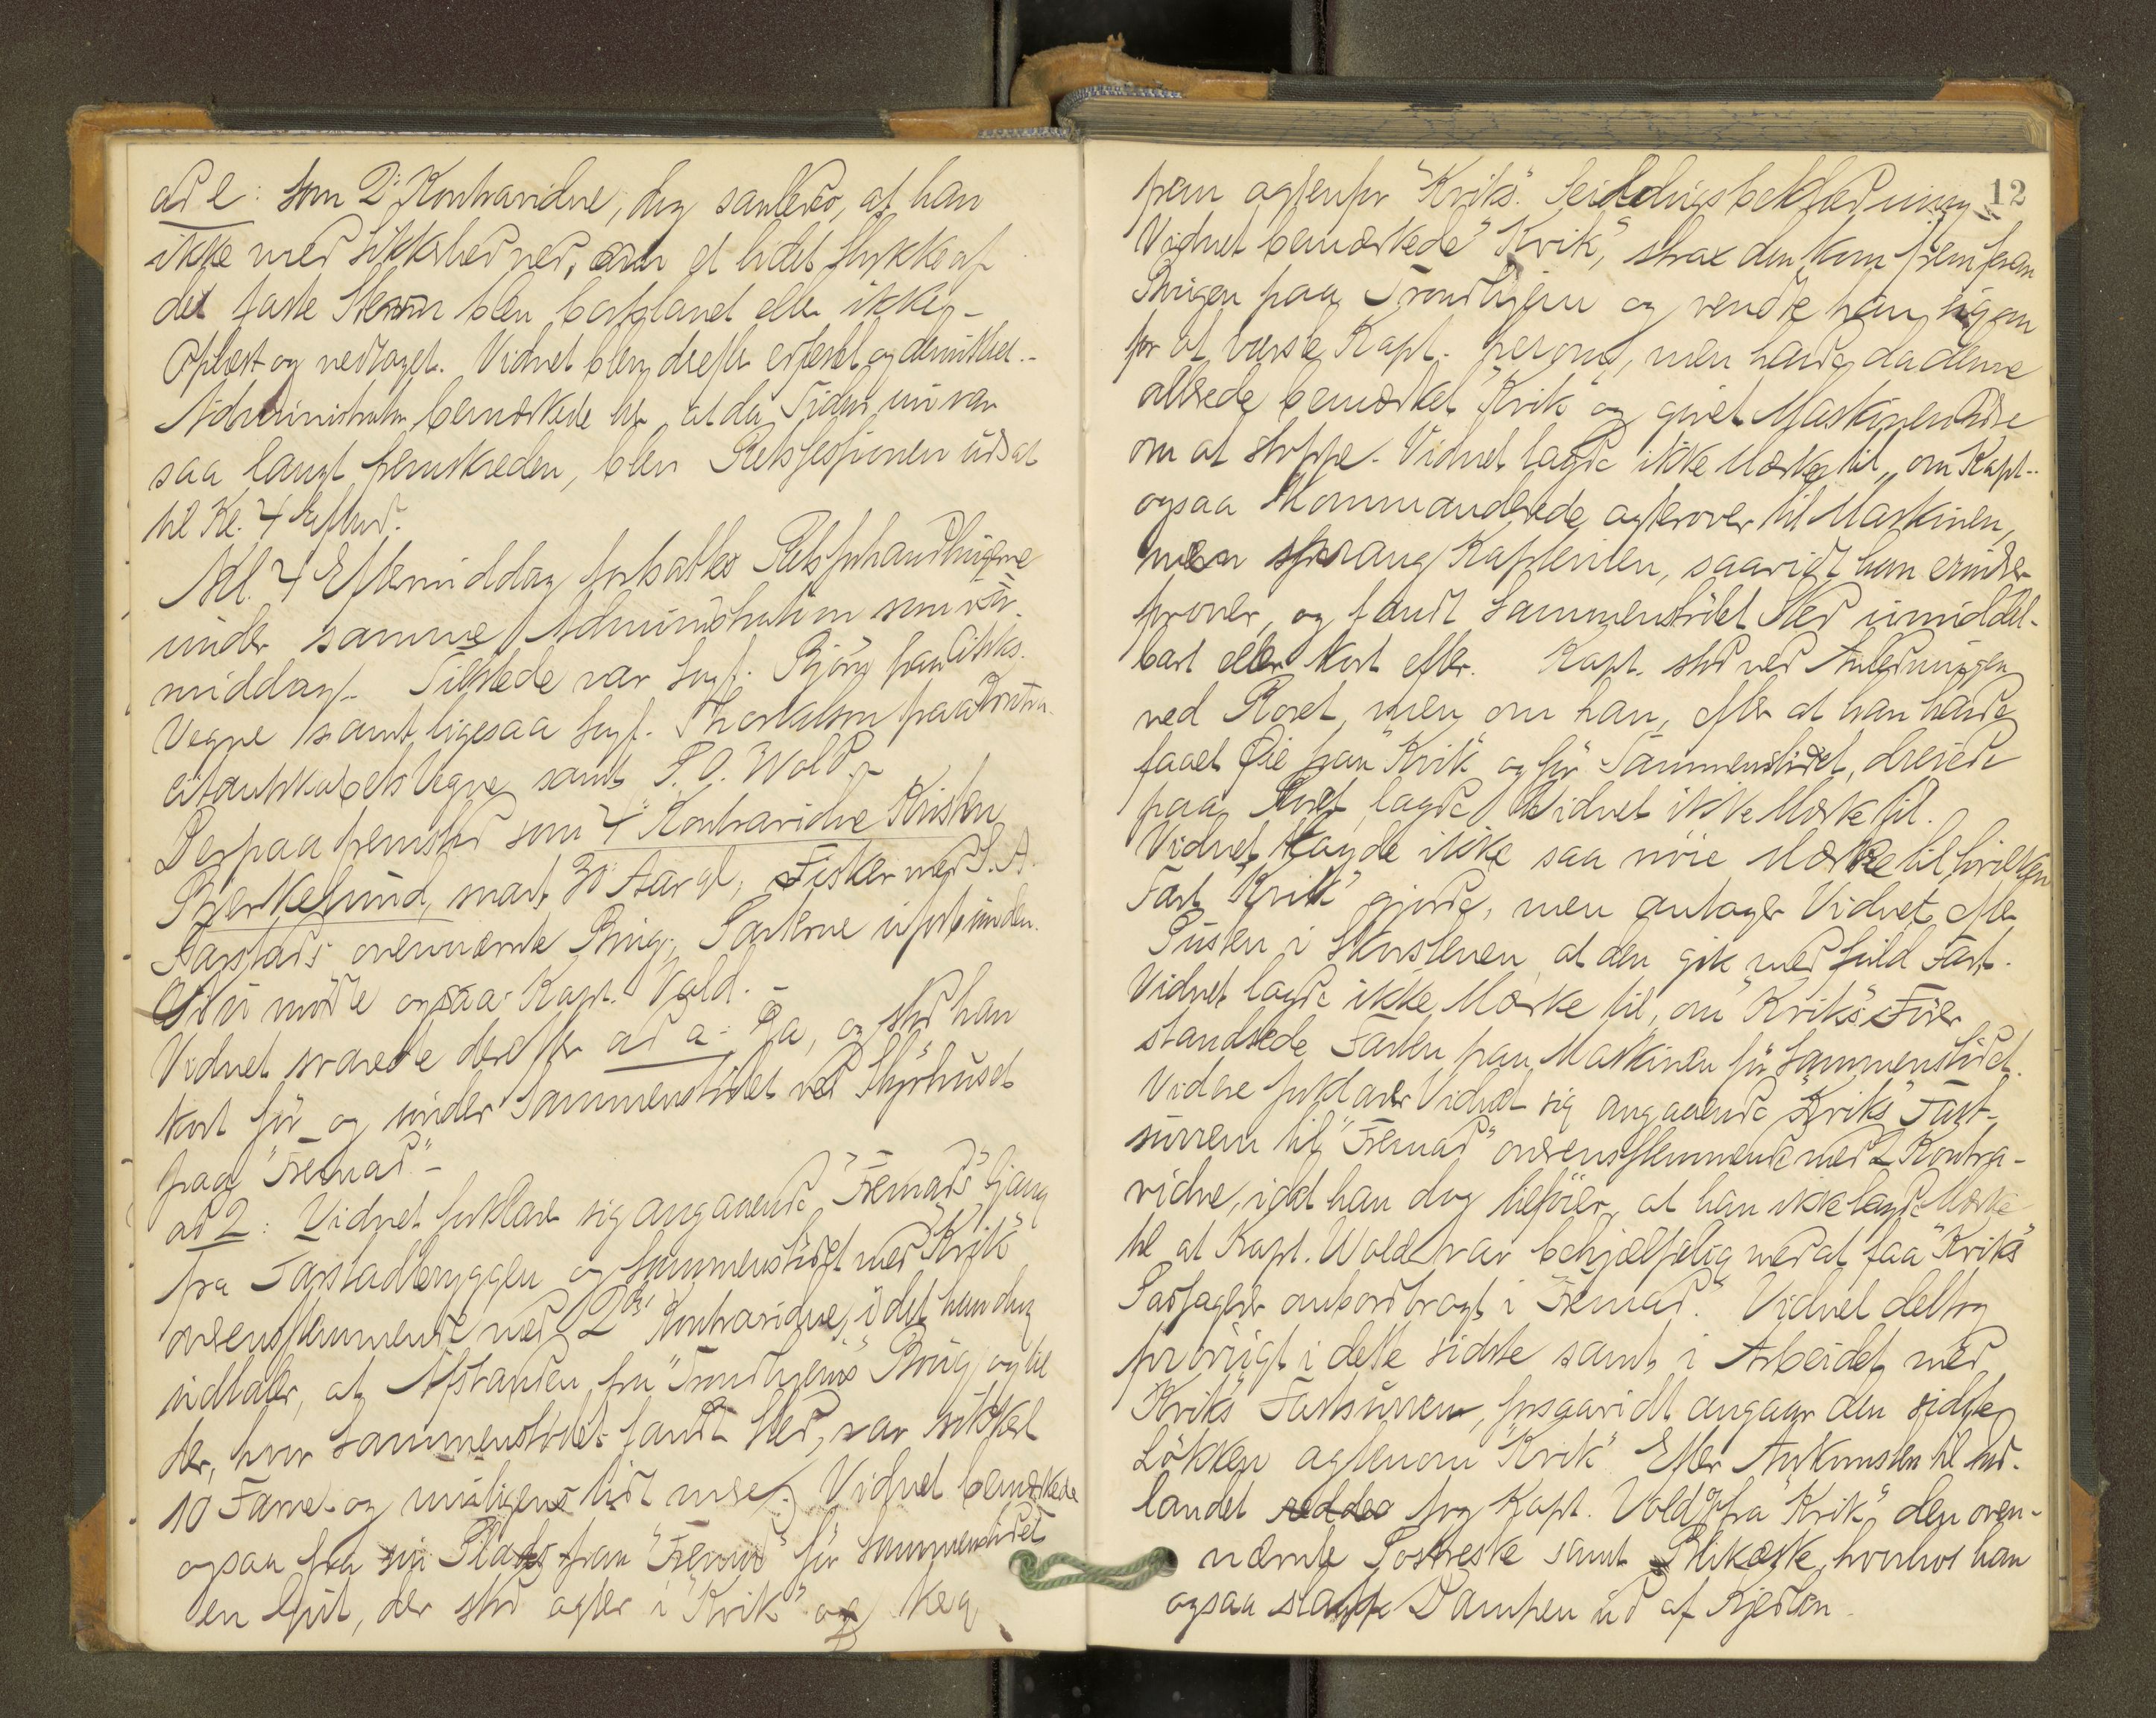 ad l: som 2' Kontravidne, dog saaledes, at han
ikke med Sikkerhed ved, om et lidet Stykke af
det faste blev bortslaaet eller ikke,-
Oplæst og vedtaget. Vidnet blev derefter erfaret og demitteret.-
Administrator bemærkede her at da Tiden nu var
saa langt fremskreden, blev Retssessionen udsat
til Kl. 4 Eftmd.
Kl. 4 Eftermiddag fortsattes Retsforhandlingerne
under samme Administration som før-
middag. Tilstede var Sagf. Bjørg paa Citks.
Vegne samt ligesaa Sagf. Thorkelsen paa Kontra-
citantskabets Vegne samt P. O. Wold.-
Derpaa fremstod som 4' Kontravidne Kristen
Bjerkelund, snart 30 Aar gl, Fisker ved S. A.
Farstads ovennævnte Brug; Parterne uforbunden.
Nu mødte ogsaa Kapt. Vold.
Vidnet svarede derefter ad a: Ja, og stod han
kort før og under Sammenstødet ved Styrhuset
paa "Fremad".-
ad 2: Vidnet forklarer sig angaaende "Fremads" Gang
fra Farstadbryggen og Sammenstødet med "Kvik"
overensstemmende med 2det Kontravidne, idet han dog
udtaler, at Afstanden fra "Trondhjems" Brug og til
der, hvor Sammenstødet fandt Sted, var sikkert
10 Favne og muligens lidt mere. Vidnet bemærkede
ogsaa fra sin Plads paa "Fremad" før Sammenstødet
en Gut, der stod agter i "Kvik" og keg
12
frem agtenfor "Kviks" Seildugsbeklædning.
Vidnet bemærkede "Kvik", strax den kom frem fran
Brugen paa Trondhjem og vendte han sig om
for at varsle Kapt. herom, men havde da denne
allerede bemærket "Kvik" og givet Maskinen Ordre
om at stoppe. Vidnet lagde ikke Mærke til, om Kapt.
ogsaa kommanderede agterover til Maskinen,
men sprang Kapteinen, saavidt han erindrer
forover, og fandt Sammenstødet Sted umiddel-
bart eller kort efter. Kapt. stod ved Anledningen
ved Roret, men om han, efter at han havde
faaet Øie paa "Kvik" og før Sammenstødet, dreiede
paa Roret, lagde Vidnet ikke Mærke til.
Vidnet lagde ikke saa nøie Mærke til hvilken
Fart "Kvik" gjorde, men antager Vidnet efter
Pusten i Skorstenen at den gik med fuld Fart.
Vidnet lagde ikke Mærke til, om "Kviks" Fører
standsede Farten paa Maskinen før Sammenstødet.
Videre forklarer Vidnet sig angaaende "Kviks" Fast-
surren til "Fremad" overensstemmende med 2 Kontra-
vidne, idet han dog tilføier, at han ikke lagde Mærke
til at Kapt. Wold var behjælpelig med at faa "Kviks"
Passagerer ombordbragt i "Fremad." Vidnet deltog
forøvrigt i dette sidste samt i Arbeidet med
Kviks Fastsurren, forsaavidt angaar den sidste
Løkken agtenom "Kvik". Efter Ankomsten til Ind-
landet reddes tog Kapt. Vold fra "Kvik" den oven-
nævnte Postveske samt Blikæske, hvorhos han
ogsaa slap Dampen ud af Kjedlen.